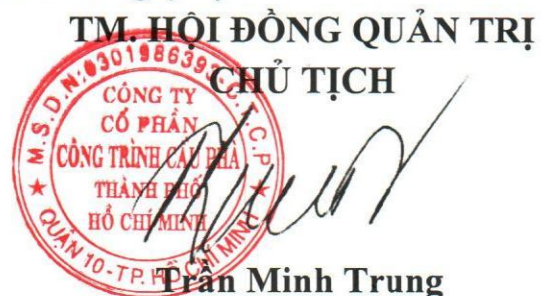 TM. HỘI ĐỒNG QUẢN TRỊ
CHỦ TỊCH
M.S.D.N:0301986393-C.T.C.P
CÔNG TY
CỔ PHẦN
CÔNG TRÌNH CẦU PHÀ
THÀNH PHỐ
HỒ CHÍ MINH
QUẬN 10-TP. HỒ CHÍ MINH
Trần Minh Trung